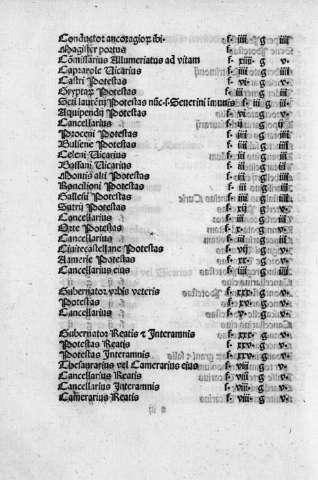 Conductor ancoragiorum ibi. f. iiii g iiii
Magister portus f.
Comissarius Allumeriatus ad vitam f. xiii. g v.
Caprarole Vicarius f. iii g iiii
Castri Potestas f. vi. g v.
Gryptarum Potestas f. iii g iiii
Scti laurentii Potestas nuc. s. Severini imunis f. iii g iii
Aquipendii Potestas f. vi g v.
Cancellarius f. ii g ii
Proceni Potestas f. iiii g iiii
Balsene Potestas f. iii g iiii
Celeni Vicarius f. iii g iiii
Bassani Vicarius f. iii g iiii
Montis alti Potestas f. iii g iiii
Roncilioni Potestas f. iii g iiii
Gallesii Potestas f. iii g iiii
Sutrii Potestas f. xii g v.
Cancellarius f. iii g iiii
Orte Potestas f. vi g v.
Cancellarius f. iii g iiii
Civitecastellane Potestas f. vii g v.
Amerie Potestas f. xx. g v.
Cancellarius eius f. iii g iiii
Gubernator urbis veteris f. xxx. g v.
Potestas f. xv. g v.
Cancellarius f. v. g v.
Gubernator Reatis & Interamnis f. xxx. g v.
Potestas Reatis f. xxv. g v.
Potestas Interamnis f. xxv. g v.
Thesaurarius vel Camerarius eius f. viii g v.
Cancellarius Reatis f. viii g v.
Cancellarius Interamnis f. viii g v.
Camerarius Reatis f. viii g v.